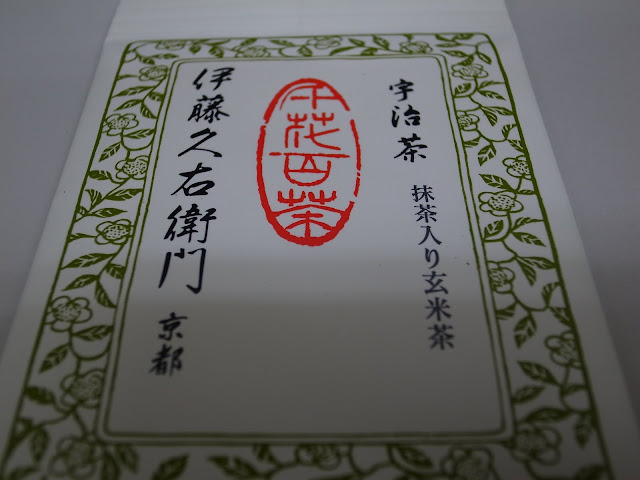 宇治茶
抹茶入り玄米茶
千花百茶
伊藤久右衛門
京都